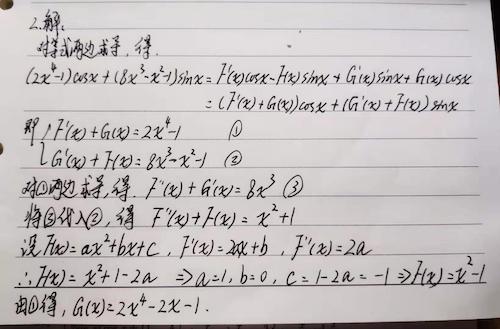 2.解:
对等式两边求导,得.
(2x⁴-1)cosx+(8x³-x²-1)sinx=F'(x)cosx-F(x)sinx+G'(x)sinx+G(x)cosx
=(F'(x)+G(x))cosx+(G'(x)+F(x))sinx
即 { F'(x)+G(x)=2x⁴-1 ①
G'(x)+F(x)=8x³-x²-1 ②
对①两边求导,得. F''(x)+G'(x)=8x³ ③
将③代入②,得 F''(x)+F(x)=x²+1
设F(x)=ax²+bx+c, F'(x)=2ax+b, F''(x)=2a
∴F(x)=x²+1-2a ⇒a=1,b=0,c=1-2a=-1⇒F(x)=x²-1
由①得,G(x)=2x⁴-2x-1.